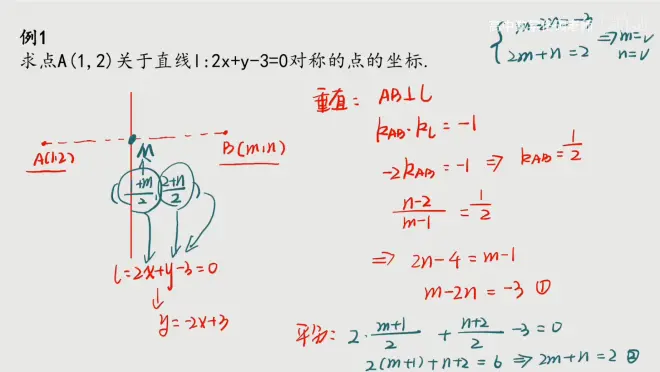 例1
求点A(1,2)关于直线l:2x+y-3=0对称的点的坐标.
m-2n=-3
2m+n=2 ⇒ m=√
n=√
A(1,2)
M
B(m,n)
(1+m/2, 2+n/2)
l=2x+y-3=0
y=-2x+3
垂直: AB⊥l
k_AB·k_l=-1
-2k_AB=-1 ⇒ k_AB=1/2
n-2/m-1=1/2
⇒ 2n-4=m-1
m-2n=-3 ①
平分: 2·m+1/2+n+2/2-3=0
2(m+1)+n+2=6 ⇒ 2m+n=2 ②